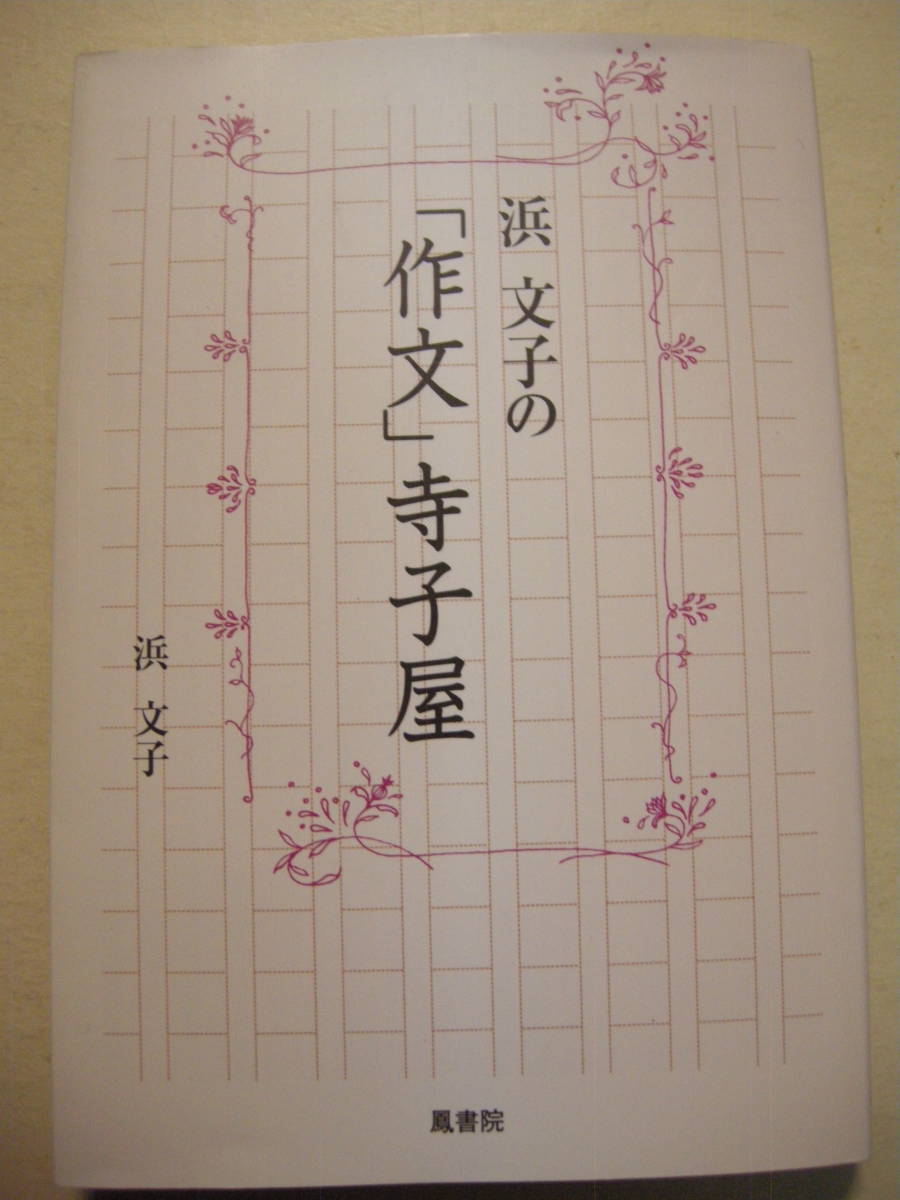 浜 文子の
「作文」寺子屋
浜 文子
鳳書院